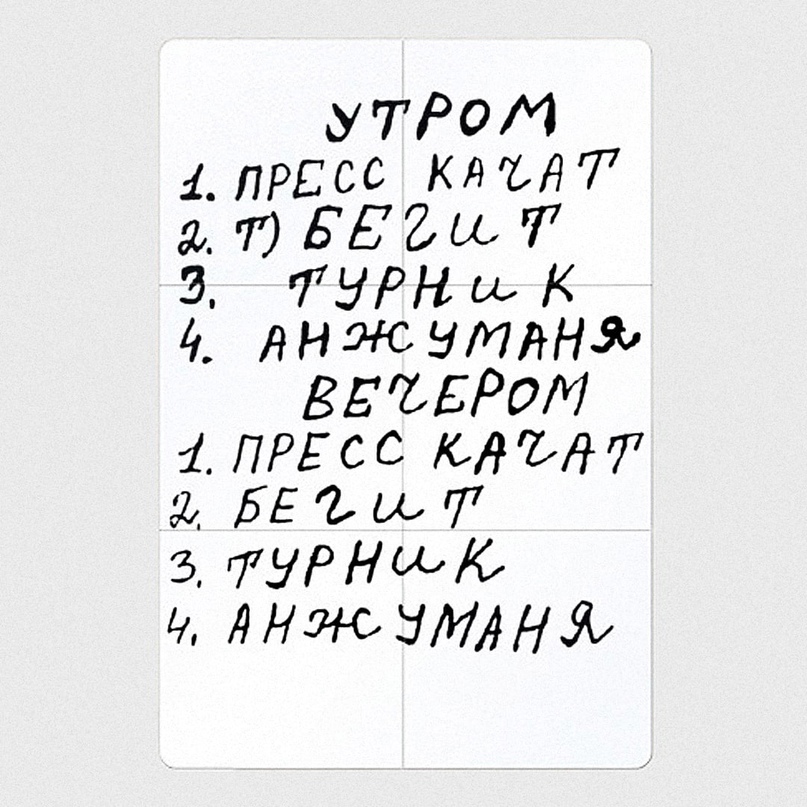 УТРОМ
1. ПРЕСС КАЧАТ
2. Т) БЕГИТ
3. ТУРНИК
4. АНЖУМАНЯ
ВЕЧЕРОМ
1. ПРЕСС КАЧАТ
2. БЕГИТ
3. ТУРНИК
4. АНЖУМАНЯ